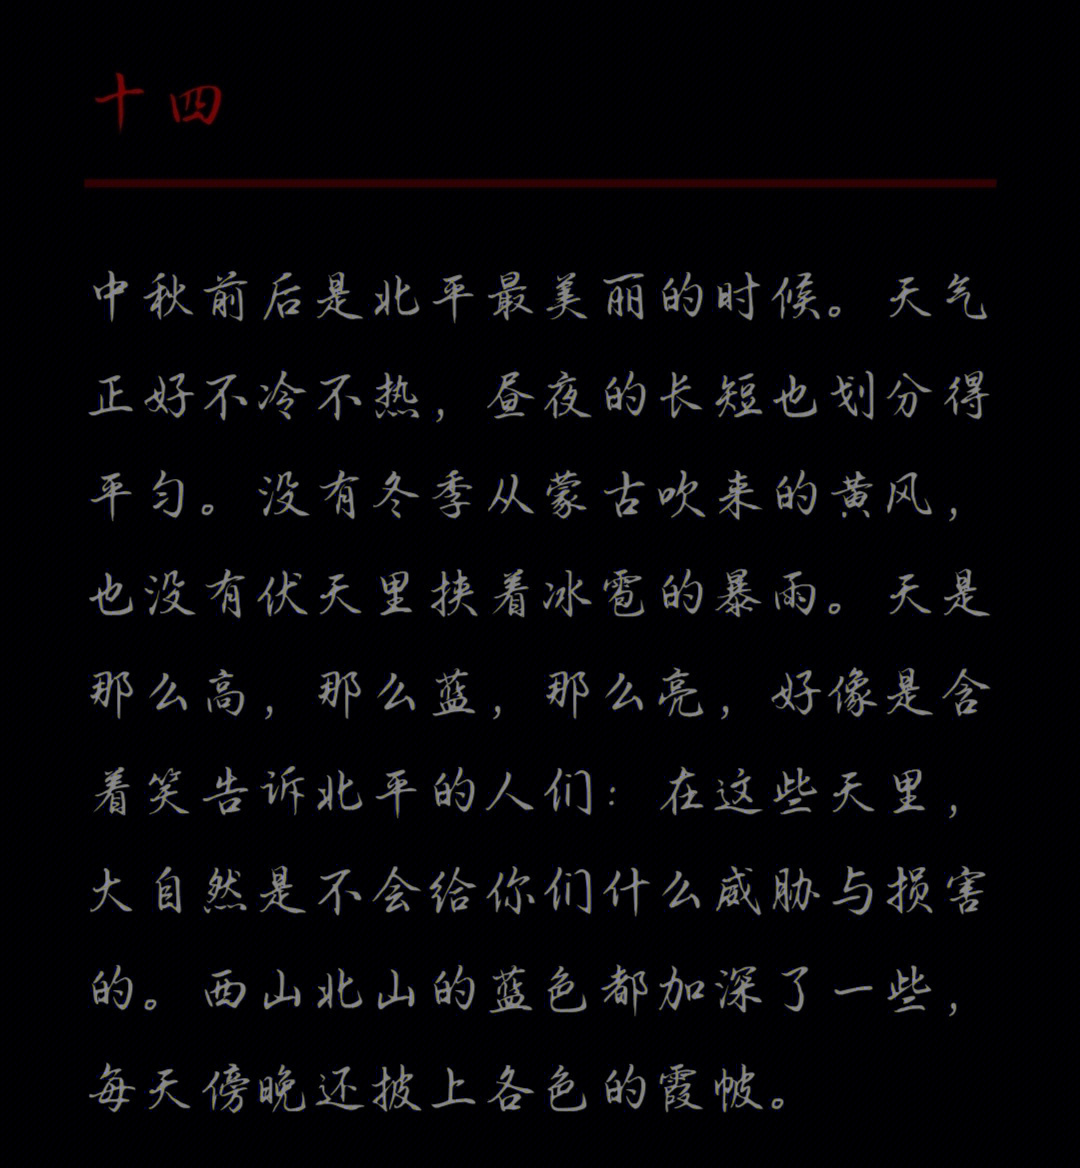 十四
中秋前后是北平最美丽的时候。天气
正好不冷不热，昼夜的长短也划分得
平匀。没有冬季从蒙古吹来的黄风，
也没有伏天里挟着冰雹的暴雨。天是
那么高，那么蓝，那么亮，好像是含
着笑告诉北平的人们：在这些天里，
大自然是不会给你们什么威胁与损害
的。西山北山的蓝色都加深了一些，
每天傍晚还披上各色的霞帔。